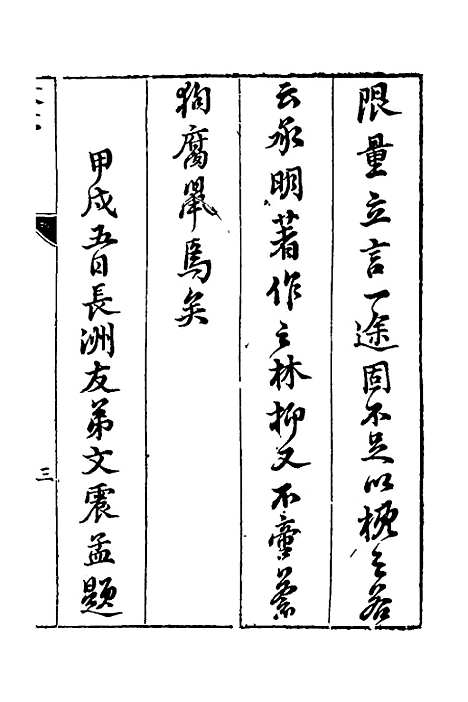 限量立言一途固不足以概之若
云承明著作之林抑又不啻芻
狗腐鼠焉矣
甲戌五日長洲友弟文震孟題
三